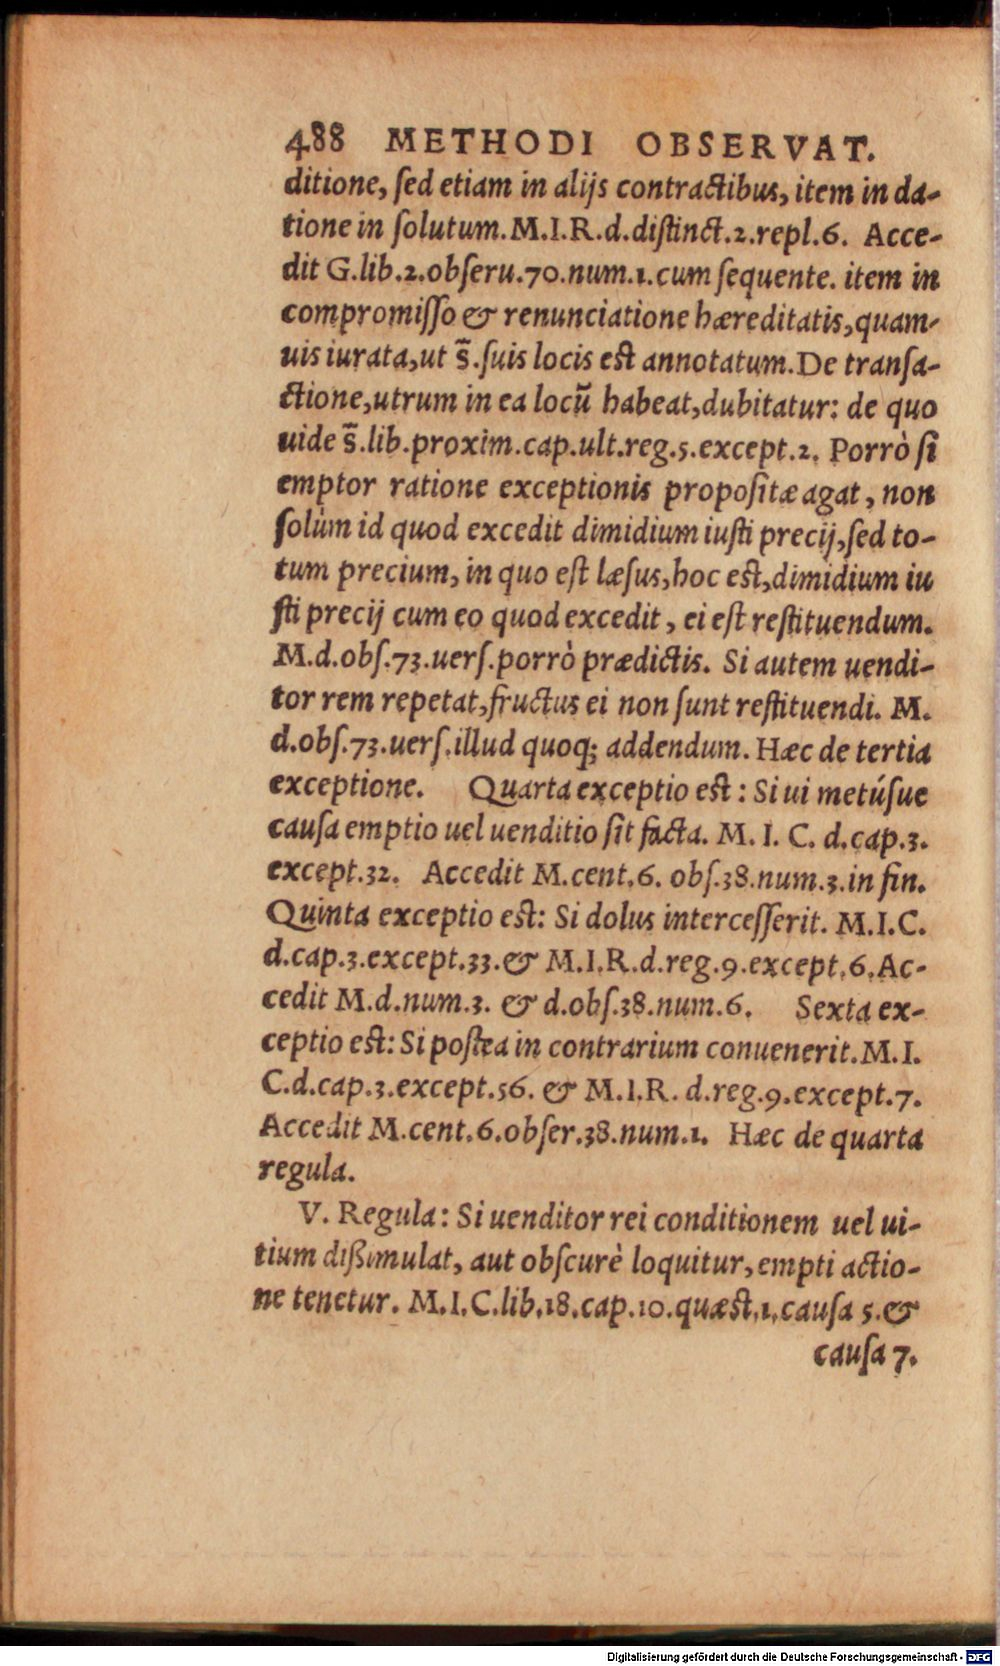 488 METHODI OBSERVAT.
ditione, ſed etiam in alijs contractibus, item in da-
tione in ſolutum. M.I.R.d.diſtinct.2.repl.6. Acce-
dit G.lib.2.obſeru.70.num.1.cum ſequente. item in
compromiſſo & renunciatione hæreditatis, quam-
uis iurata, ut s̃.ſuis locis eſt annotatum. De tranſa-
ctione, utrum in ea locũ habeat, dubitatur: de quo
uide s̃.lib.proxim.cap.ult.reg.5.except.2. Porrò ſi
emptor ratione exceptionis propoſitæ agat, non
ſolùm id quod excedit dimidium iuſti precij, ſed to-
tum precium, in quo eſt læſus, hoc eſt, dimidium iu
ſti precij cum eo quod excedit, ei eſt reſtituendum.
M.d.obſ.73.uerſ.porrò prædictis. Si autem uendi-
tor rem repetat, fructus ei non ſunt reſtituendi. M.
d.obſ.73.uerſ.illud quoq; addendum. Hæc de tertia
exceptione. Quarta exceptio eſt: Si ui metúſue
cauſa emptio uel uenditio ſit facta. M. I. C. d.cap.3.
except.32. Accedit M.cent.6. obſ.38.num.3.in fin.
Quinta exceptio eſt: Si dolus interceſſerit. M.I.C.
d.cap.3.except.33.& M.I.R.d.reg.9.except.6.Ac-
cedit M.d.num.3. & d.obſ.38.num.6. Sexta ex-
ceptio eſt: Si poſtea in contrarium conuenerit. M.I.
C.d.cap.3.except.56. & M.I.R. d.reg.9.except.7.
Accedit M.cent.6.obſer.38.num.1. Hæc de quarta
regula.
V. Regula: Si uenditor rei conditionem uel ui-
tium dißimulat, aut obſcurè loquitur, empti actio-
ne tenetur. M.I.C.lib.18.cap.10.quæſt.1.cauſa 5.&
cauſa 7.
Digitalisierung gefördert durch die Deutsche Forschungsgemeinschaft - DFG